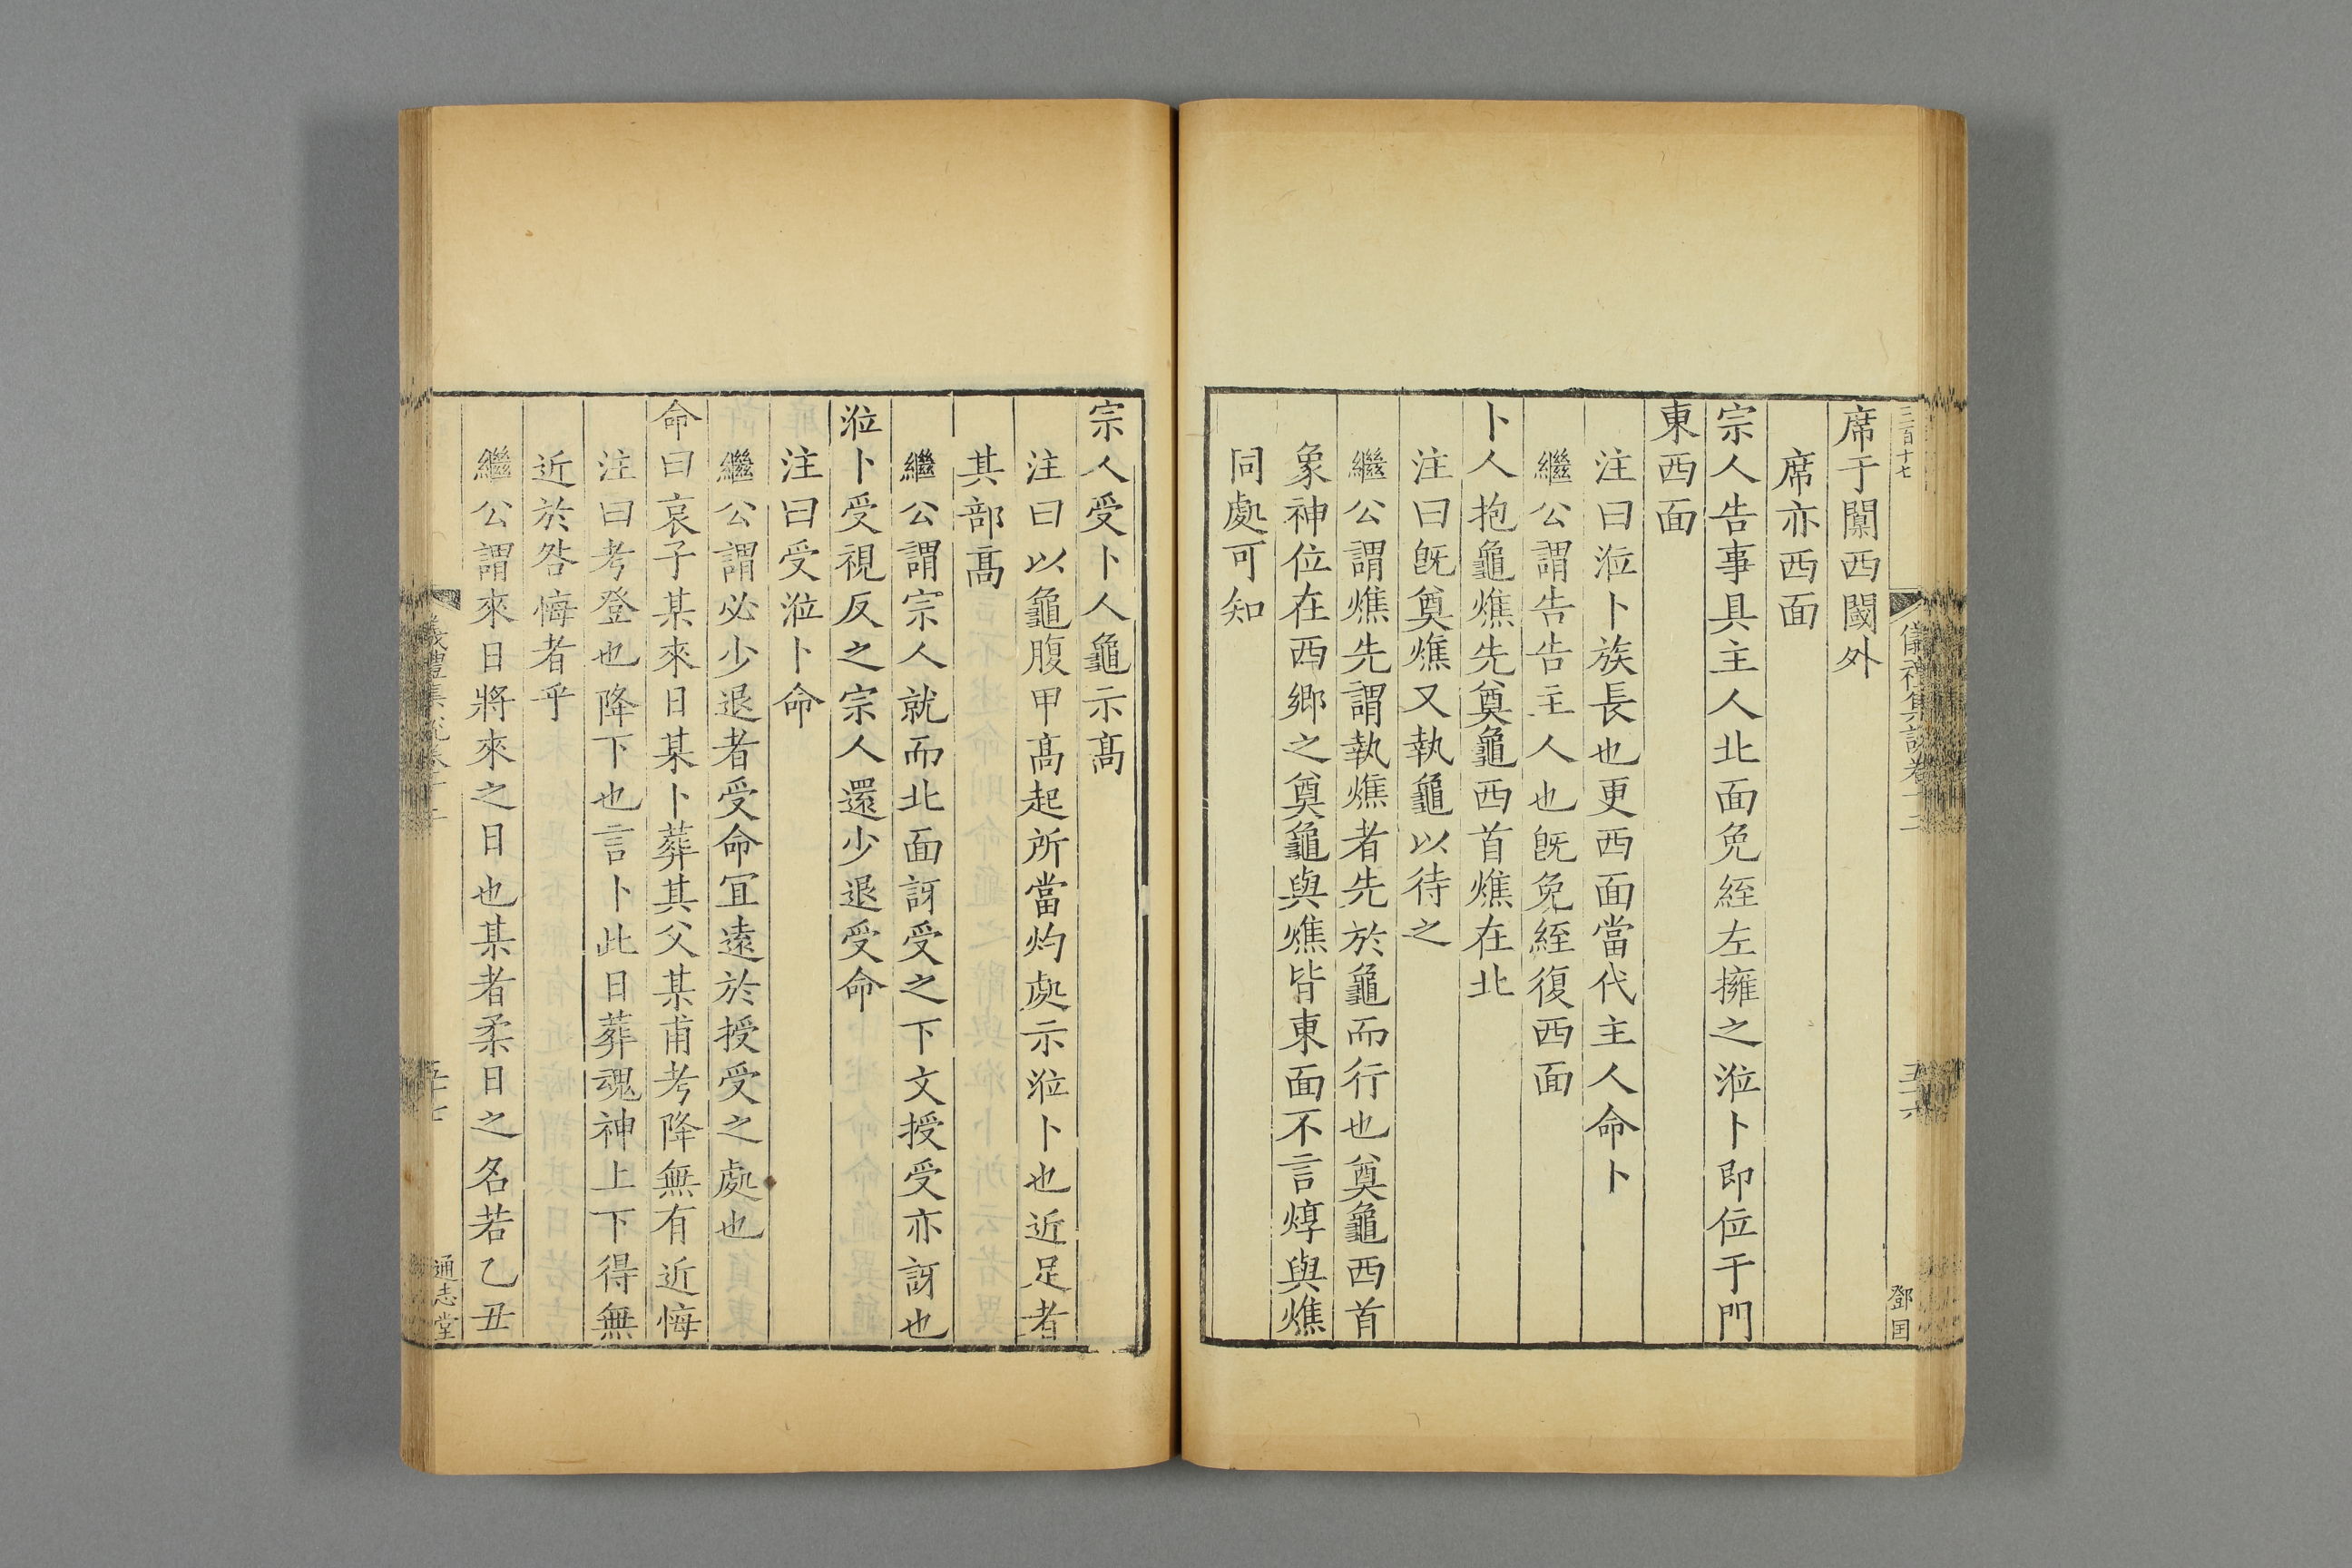 三百十七
儀禮集說卷十二
五十六
鄧国
席于闑西閾外
席亦西面
宗人告事具主人北面免絰左擁之涖卜即位于門
東西面
注曰涖卜族長也更西面當代主人命卜
繼公謂告告主人也既免絰復西面
卜人抱龜燋先奠龜西首燋在北
注曰既奠燋又執龜以待之
繼公謂燋先謂執燋者先於龜而行也奠龜西首
象神位在西鄉之奠龜與燋皆東面不言焞與燋
同處可知
宗人受卜人龜示髙
注曰以龜腹甲髙起所當灼處示涖卜也近足者
其部髙
繼公謂宗人就而北面訝受之下文授受亦訝也
涖卜受視反之宗人還少退受命
注曰受涖卜命
繼公謂必少退者受命宜遠於授受之處也
命曰哀子某來日某卜葬其父某甫考降無有近悔
注曰考登也降下也言卜此日葬魂神上下得無
近於咎悔者乎
繼公謂來日將來之日也某者柔日之名若乙丑
通志堂